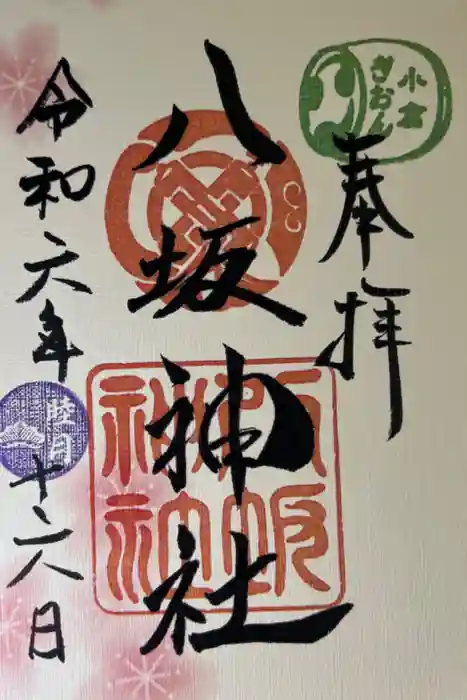 小倉
ぎおん
奉拝
八坂神社
八坂神社
令和六年
睦月
十六日